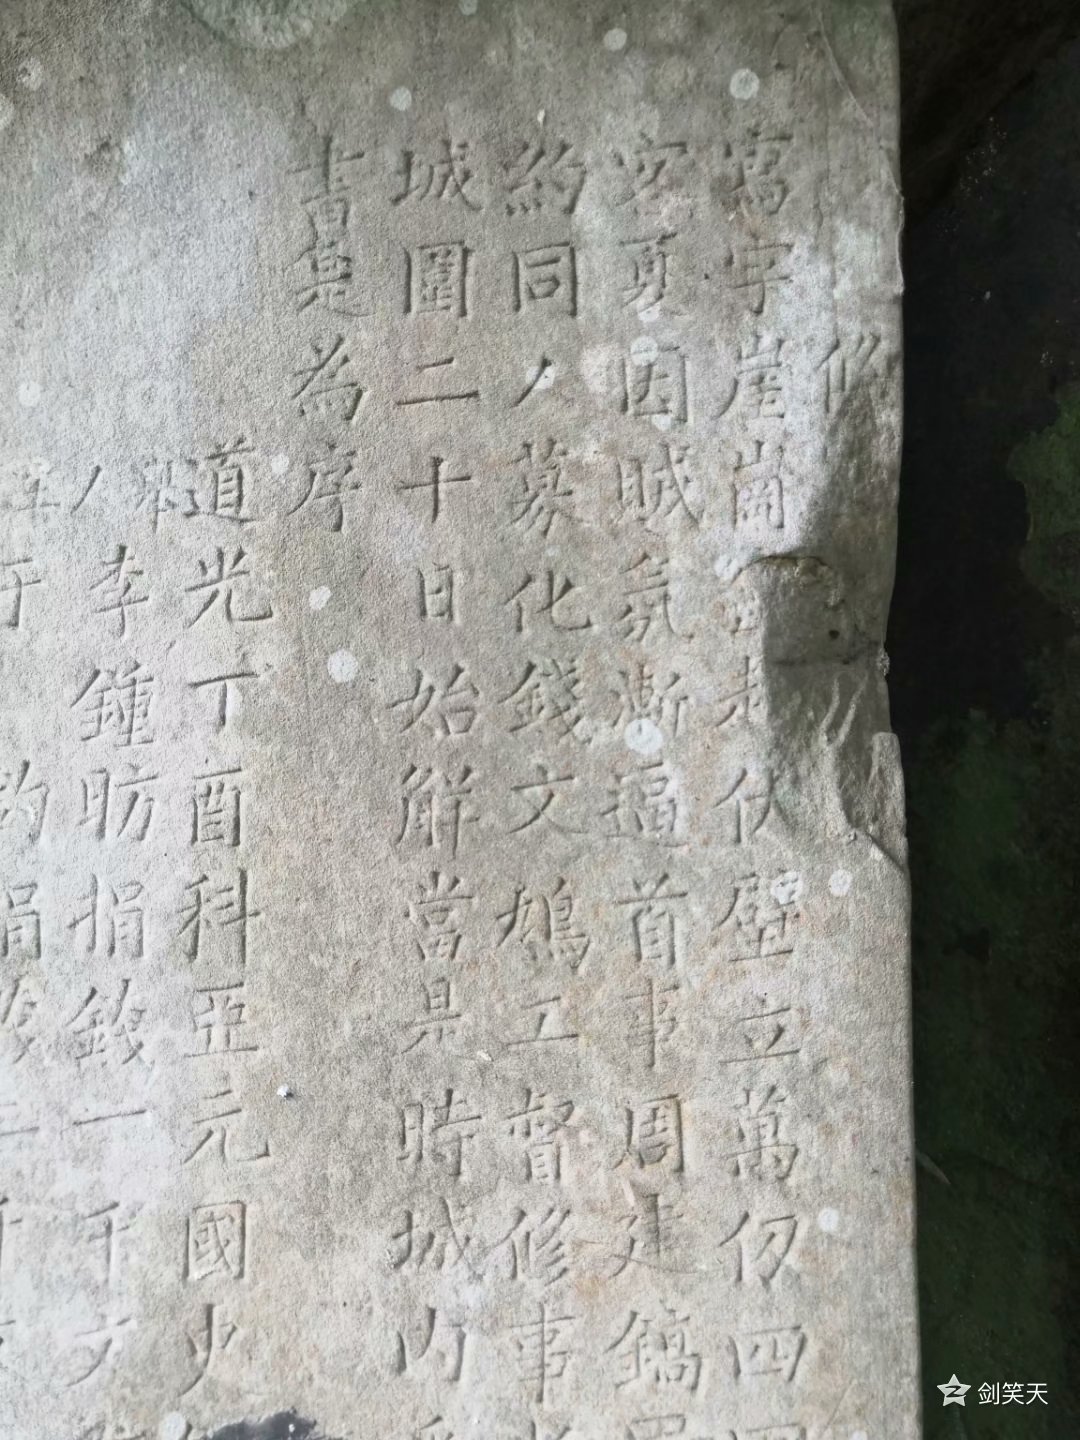 修
寫字崖崗伏壁立萬仞四
定夏因賊氛漸逼首事周建鎬
約同人募化錢文鳩工督修事
城圍二十日始解當是時城內
書是為序
道光丁酉科亞元國史
李鍾昉捐錢一千文
捐錢
剑笑天